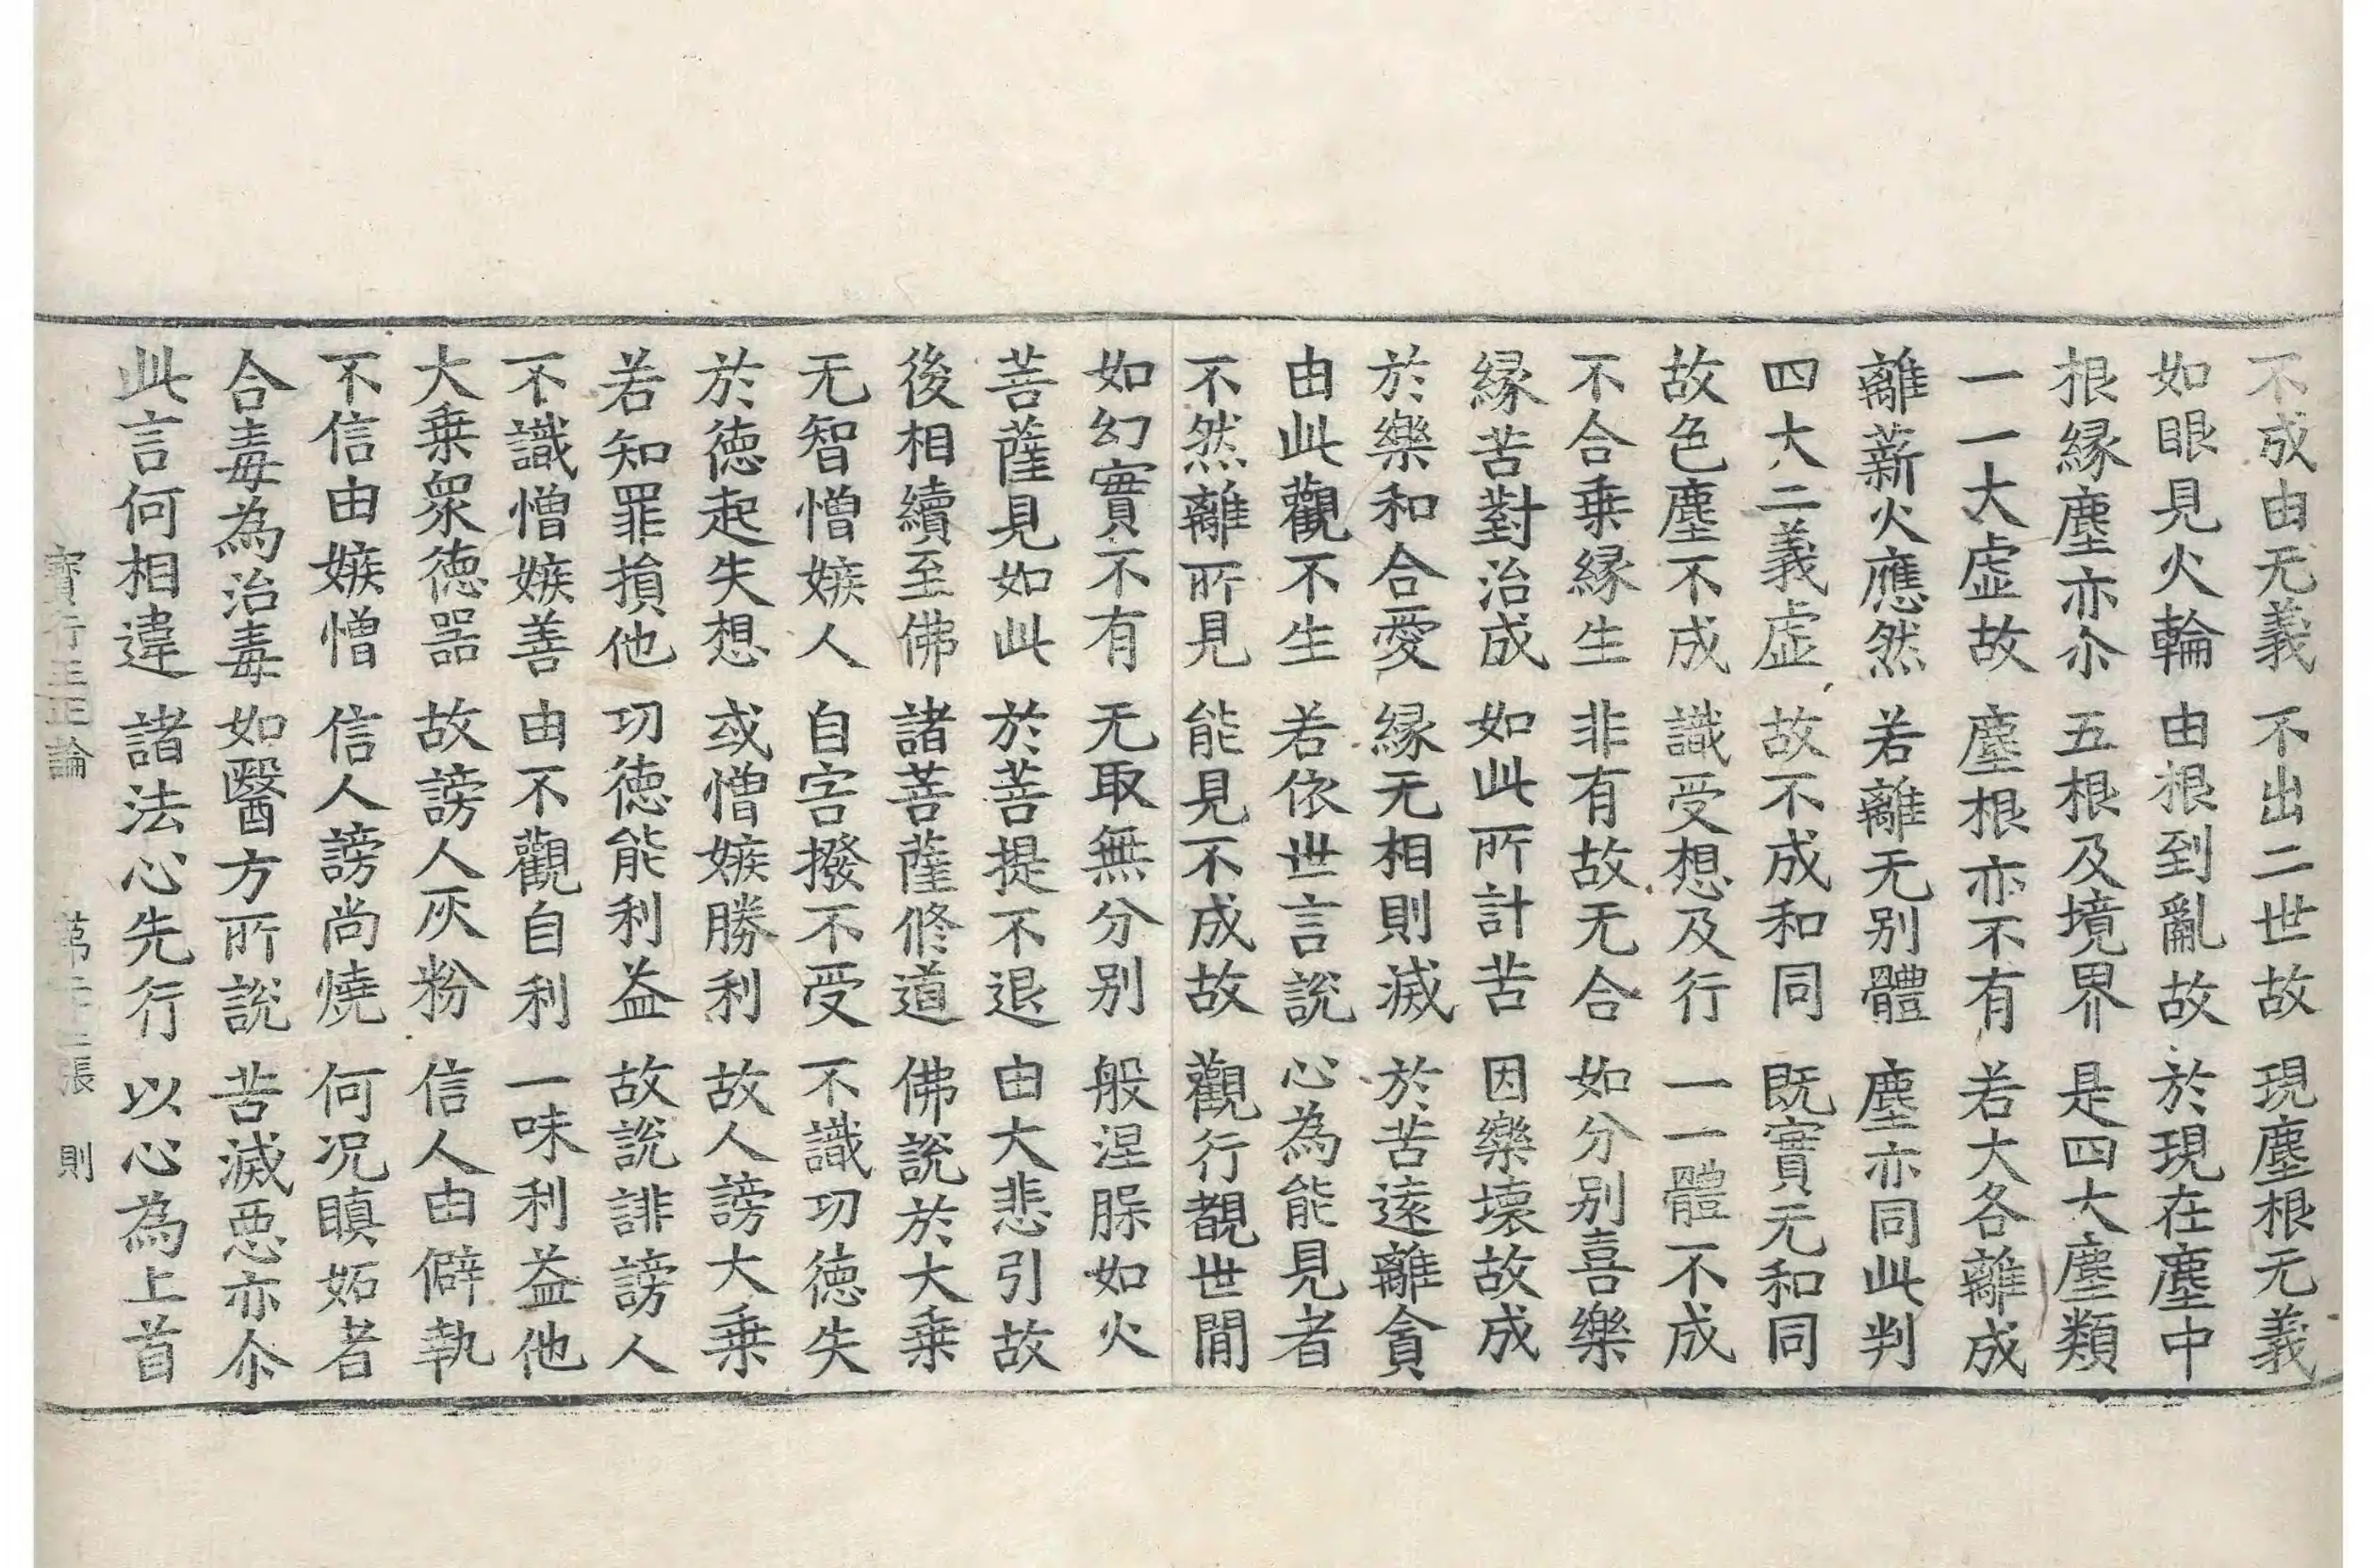 不成由无義 不出二世故 現塵根无義
如眼見火輪 由根到亂故 於現在塵中
根緣塵亦尒 五根及境界 是四大塵類
一一大虛故 塵根亦不有 若大各離成
離薪火應然 若離无別體 塵亦同此判
四大二義虛 故不成和同 既實无和同
故色塵不成 識受想及行 一一體不成
不合乗緣生 非有故无合 如分別喜樂
緣苦對治成 如此所計苦 因樂壞故成
於樂和合愛 緣无相則滅 於苦遠離貪
由此觀不生 若依世言說 心為能見者
不然離所見 能見不成故 觀行覩世間
如幻實不有 无取無分別 般涅脲如火
菩薩見如此 於菩提不退 由大悲引故
後相續至佛 諸菩薩修道 佛說於大乗
无智憎嫉人 自害撥不受 不識功德失
於德起失想 或憎嫉勝利 故人謗大乗
若知罪損他 功德能利益 故說誹謗人
不識憎嫉善 由不觀自利 一味利益他
大乗衆德器 故謗人灰粉 信人由僻執
不信由嫉憎 信人謗尚燒 何況瞋妬者
合毒為治毒 如醫方所說 苦滅惡亦尒
此言何相違 諸法心先行 以心為上首
寶行王正論 第二十二張 則